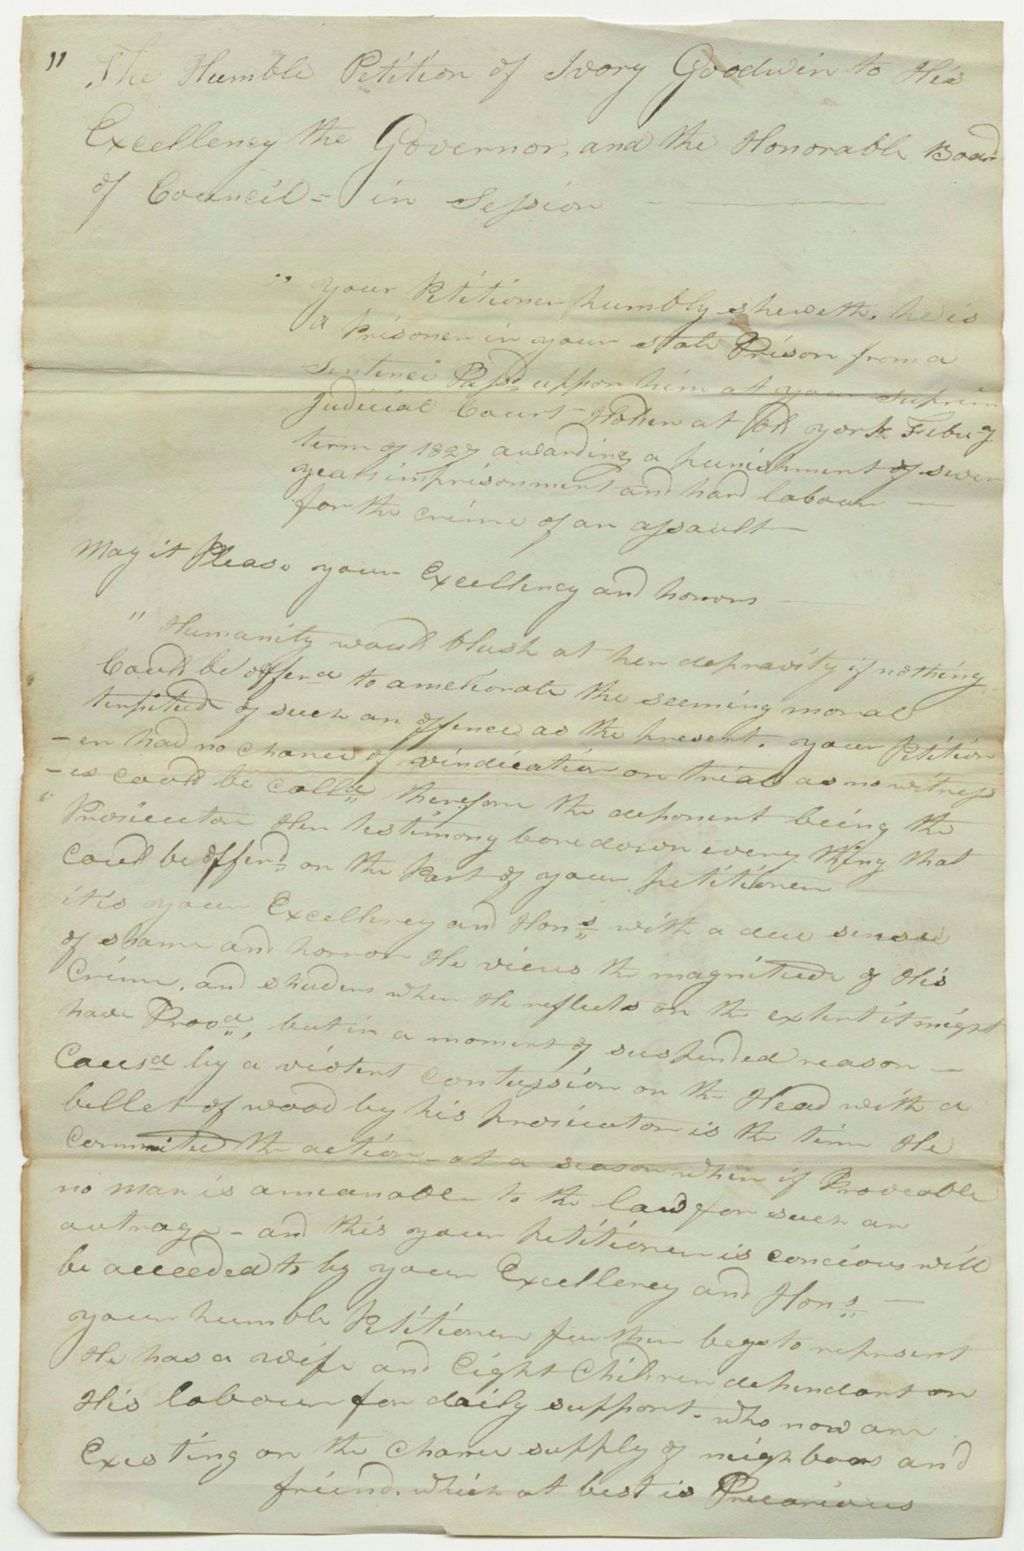 " The Humble Petition of Ivory Goodwin to His
Excellency the Governor, and the Honorable Board
of Council = in Session
" your Petitioner humbly sheweth, he is
a Prisoner in your state Prison from a
Sentence Passd uppon him at your Suprim
Judicial Court Holden at York Feby
term of 1827 awarding a punishment of seven
years imprisonment and hard labour —
for the crime of an assault —
May it Please your Excellency and honors —
" Humanity would blush at her depravity if nothing
Could be offerd to ameliorate the seeming moral
turpitude of such an offence as the present. your Petition
-er had no chance of vindication on trial as no witness
-es could be calld therefore the deponent being the
" Prosicutor Her testimony bore down every thing that
could be offerd on the Part of your petitioner
it is your Excellency and Hons with a due sense
of shame and horror He views the magnitude of His
Crime, and shuders when He reflects on the extent it might
have Provd, but in a moment of suspended reason —
Causd by a violent contussion on the Head with a
bellet of wood by his prosicutor is the time He
Committed the action - at a season when if Proveable
no man is ameanable to the law for such an
outrage - and this your petitioner is concious will
be acceeded to by your Excellency and Hons —
your humble Petitioner further begs to represent
He has a wife and Eight Children dependant on
His labour for daily support - who now are
Existing on the chance supply of neighbors and
friend. which at best is Precarious